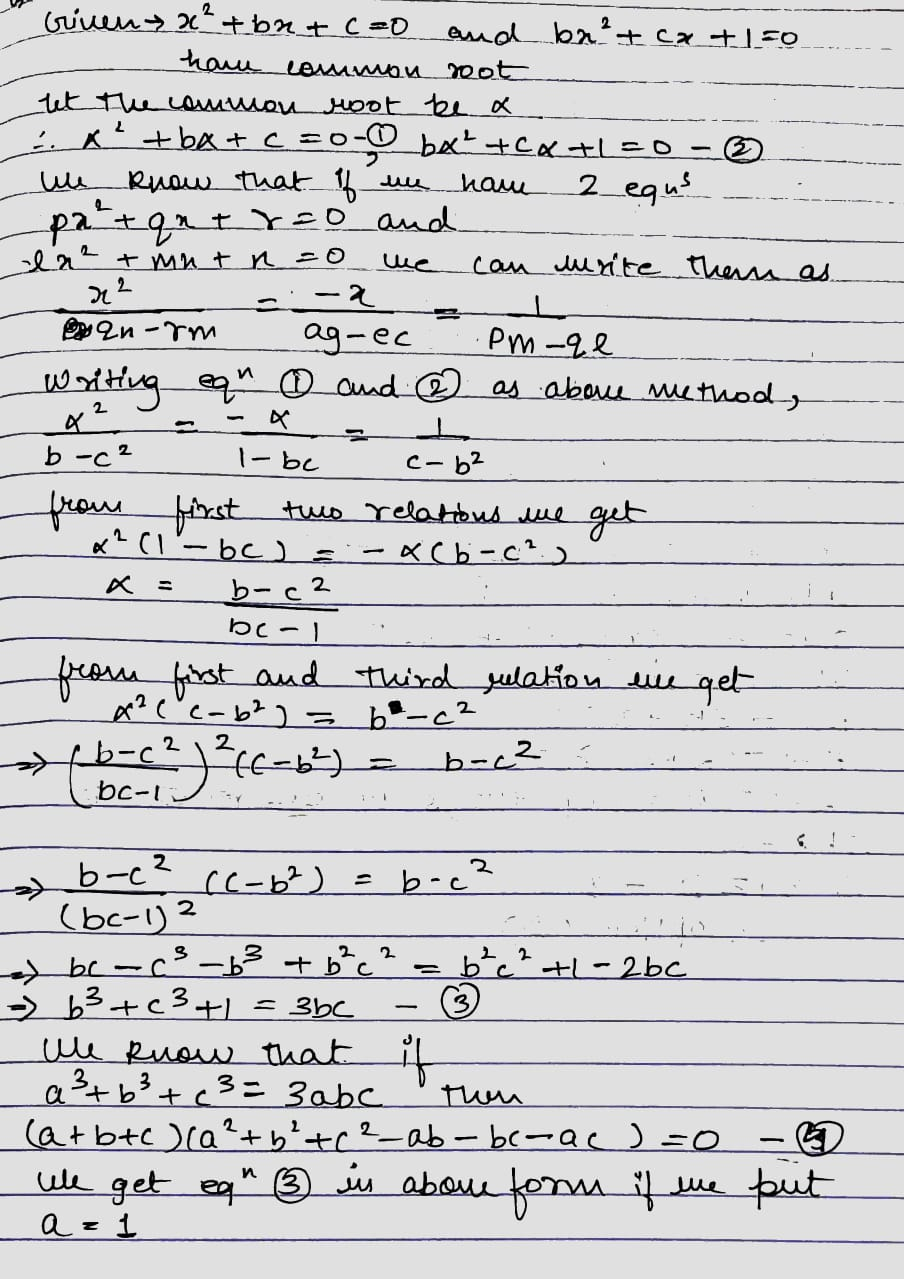 Given → x² + bx + c = 0 and bx² + cx + 1 = 0
have common root
let the common root be α
∴ α² + bα + c = 0 - ① , bα² + cα + 1 = 0 - ②
We know that if we have 2 equⁿˢ
px² + qx + r = 0 and
lx² + mx + n = 0 we can write them as
x² / (qn - rm) = -x / (ag - ec) = 1 / (pm - ql)
Writing eqⁿ ① and ② as above method,
α² / (b - c²) = -α / (1 - bc) = 1 / (c - b²)
from first two relations we get
α² (1 - bc) = - α (b - c²)
α = (b - c²) / (bc - 1)
from first and third relation we get
α² (c - b²) = b - c²
⇒ ((b - c²) / (bc - 1))² (c - b²) = b - c²
⇒ (b - c²) / (bc - 1)² (c - b²) = b - c²
⇒ bc - c³ - b³ + b²c² = b²c² + 1 - 2bc
⇒ b³ + c³ + 1 = 3bc - ③
We know that if
a³ + b³ + c³ = 3abc then
(a + b + c)(a² + b² + c² - ab - bc - ac) = 0 -
We get eqⁿ ③ in above form if we put
a = 1